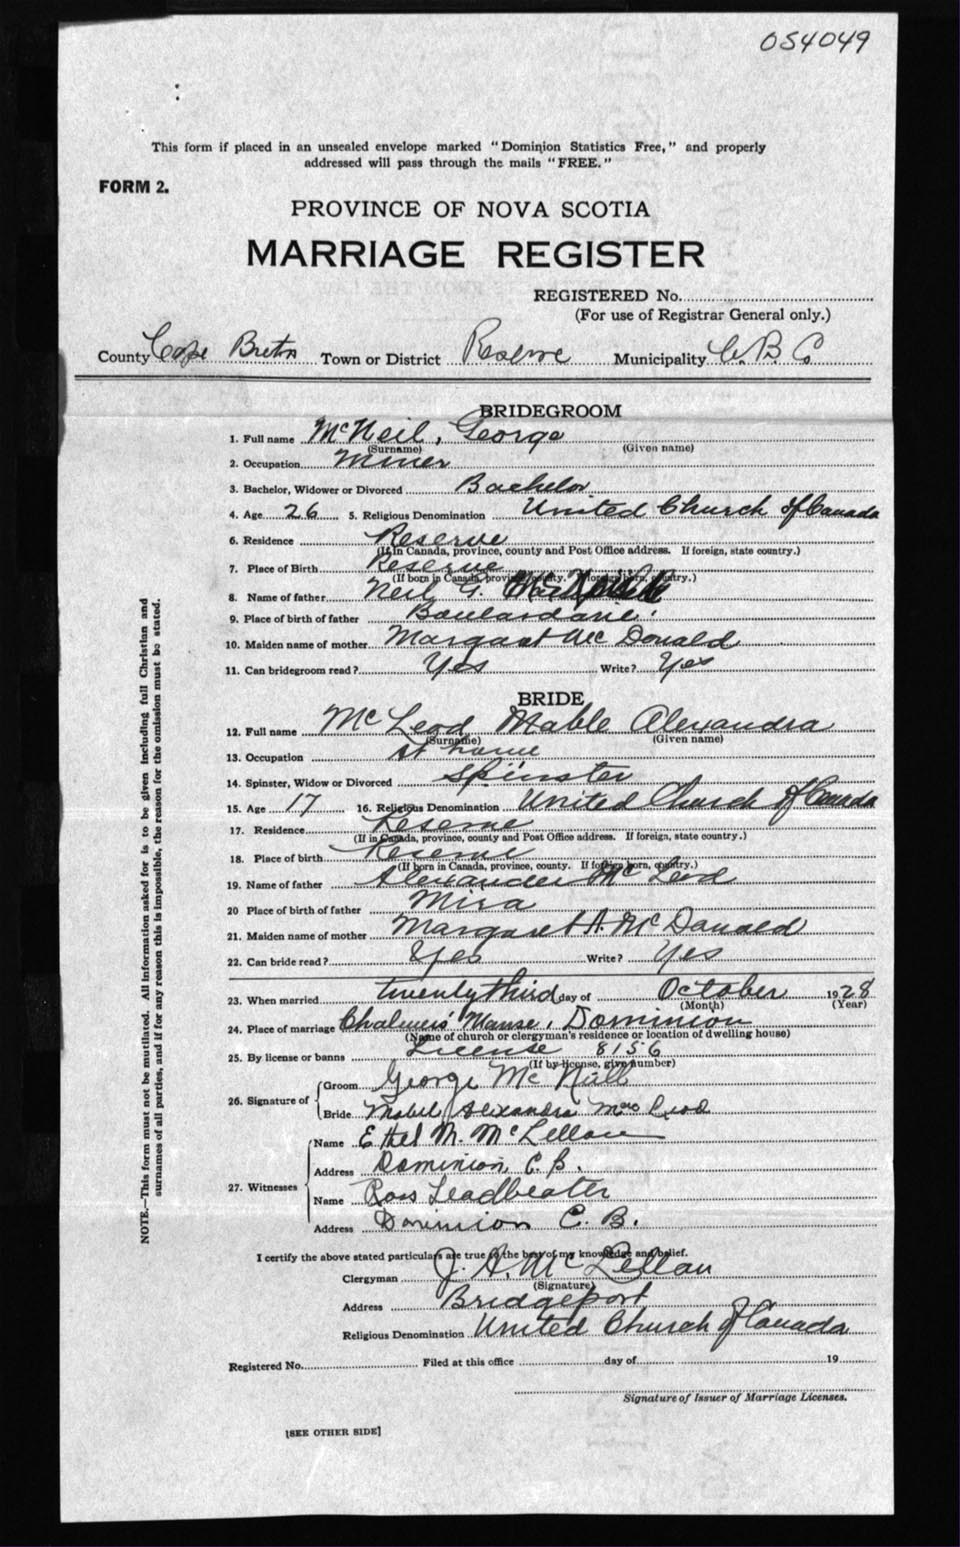 054049
This form if placed in an unsealed envelope marked "Dominion Statistics Free," and properly
addressed will pass through the mails "FREE."
FORM 2.
PROVINCE OF NOVA SCOTIA
MARRIAGE REGISTER
REGISTERED No.
(For use of Registrar General only.)
County Cape Breton Town or District Reserve Municipality C. B. Co
BRIDEGROOM
1. Full name McNeil, George
(Surname) (Given name)
2. Occupation Miner
3. Bachelor, Widower or Divorced Bachelor
4. Age 26 5. Religious Denomination United Church of Canada
6. Residence Reserve
(If in Canada, province, county and Post Office address. If foreign, state country.)
7. Place of Birth Reserve
(If born in Canada, province, county. If foreign born, country.)
8. Name of father Neil G.
9. Place of birth of father Boulardarie
10. Maiden name of mother Margaret McDonald
11. Can bridegroom read? Yes Write? Yes
BRIDE
12. Full name McLeod Mable Alexandra
(Surname) (Given name)
13. Occupation At home
14. Spinster, Widow or Divorced Spinster
15. Age 17 16. Religious Denomination United Church of Canada
17. Residence Reserve
(If in Canada, province, county and Post Office address. If foreign, state country.)
18. Place of birth Reserve
(If born in Canada, province, county. If foreign born, country.)
19. Name of father Alexander McLeod
20 Place of birth of father Mira
21. Maiden name of mother Margaret A. McDonald
22. Can bride read? Yes Write? Yes
23. When married twenty third day of October 1928
(Month) (Year)
24. Place of marriage Chalmers Manse, Dominion
(Name of church or clergyman's residence or location of dwelling house)
25. By license or banns License 8156
(If by license, give number)
26. Signature of
Groom George McNeil
Bride Mabel Alexandra MacLeod
27. Witnesses
Name Ethel M. McLellan
Address Dominion, C. B.
Name Ross Leadbeater
Address Dominion C. B.
I certify the above stated particulars are true to the best of my knowledge and belief.
Clergyman J. A. McLellan
(Signature)
Address Bridgeport
Religious Denomination United Church of Canada
Registered No. Filed at this office day of 19
Signature of Issuer of Marriage Licenses.
[SEE OTHER SIDE]
NOTE.—This form must not be mutilated. All information asked for is to be given including full Christian and
surnames of all parties, and if for any reason this is impossible, the reason for the omission must be stated.